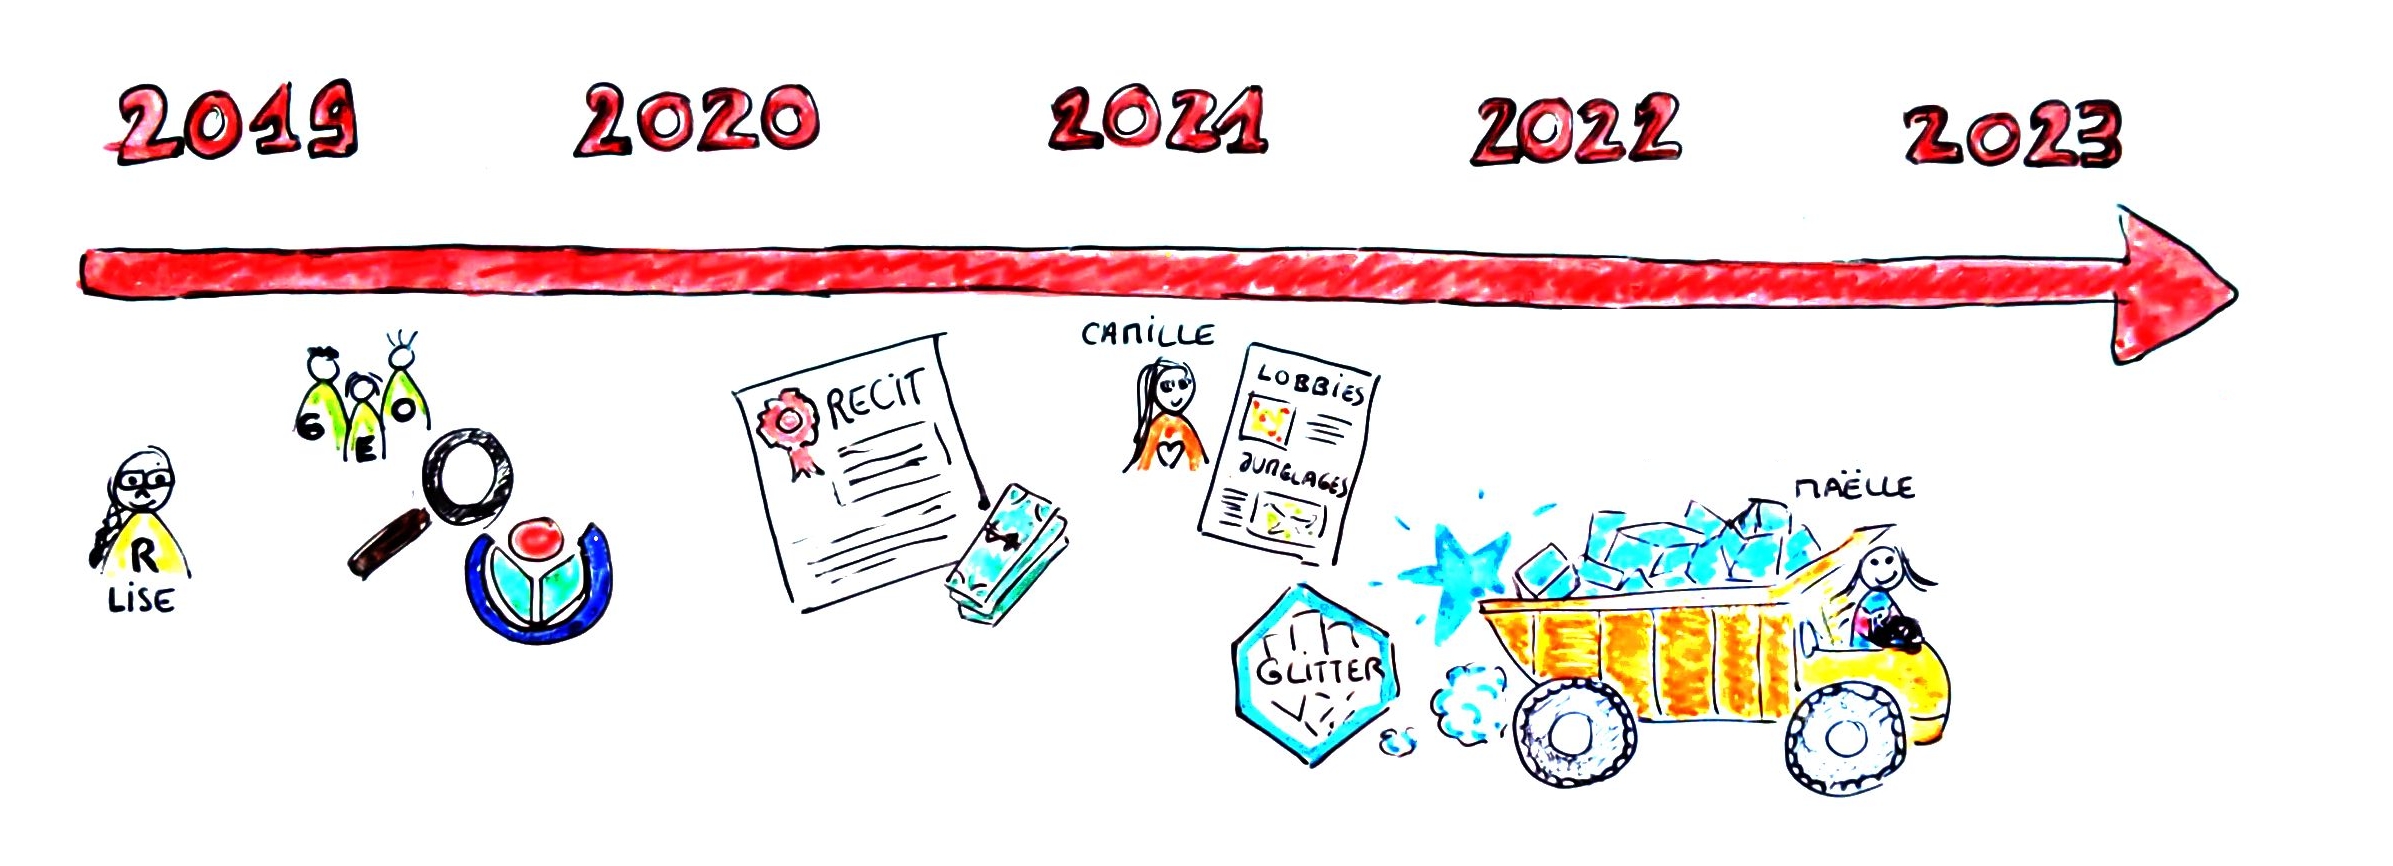 2019 2020 2021 2022 2023
G E O
R
LiSE
RECiT
CAMiLLE
LOBBiES
JUMELAGES
GLiTTER
MAËLLE